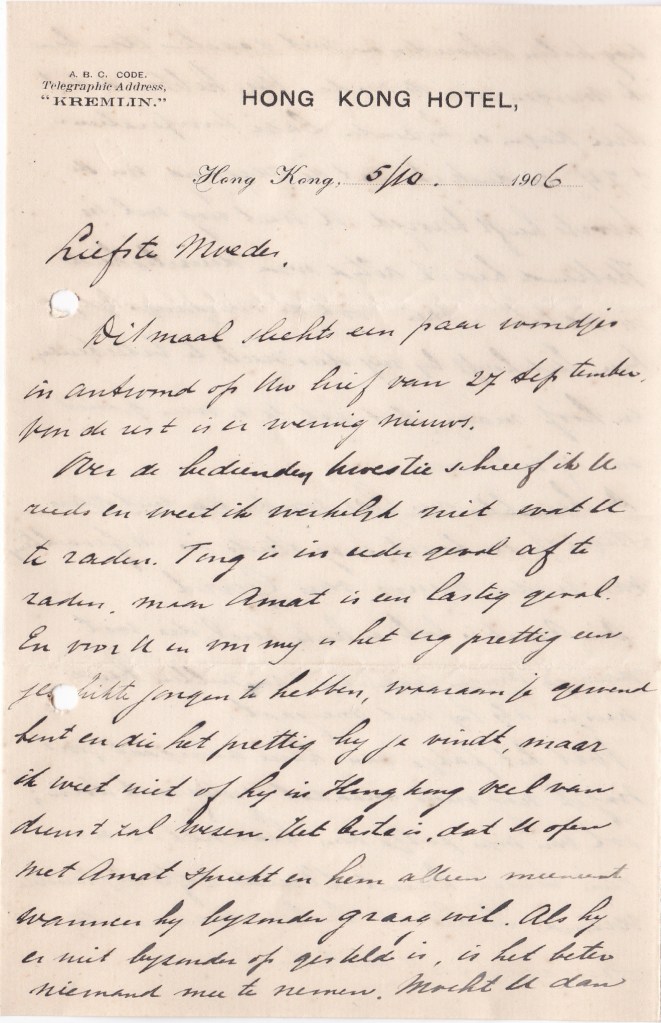 A. B. C. CODE.
Telegraphic Address,
"KREMLIN."
HONG KONG HOTEL,
Hong Kong, 5/10. 1906
Liefste Moeder.
Ditmaal slechts een paar woordjes
in antwoord op Uw brief van 27 September.
Van de rest is er weinig nieuws.
Over de bedienden kwestie schreef ik U
reeds en weet ik werkelijk niet wat U
te raden. Tong is in ieder geval af te
raden, maar Amat is een lastig geval.
En voor U en voor my is het erg prettig een
geschikte jongen te hebben, waaraan je gewend
bent en die het prettig by je vindt, maar
ik weet niet of hy in Hongkong veel van
dienst zal wesen. Het beste is, dat U open
met Amat spreekt en hem alleen meeneemt
wanneer hy byzonder graag wil. Als hy
er niet byzonder op gesteld is, is het beter
niemand mee te nemen. Mocht U dan